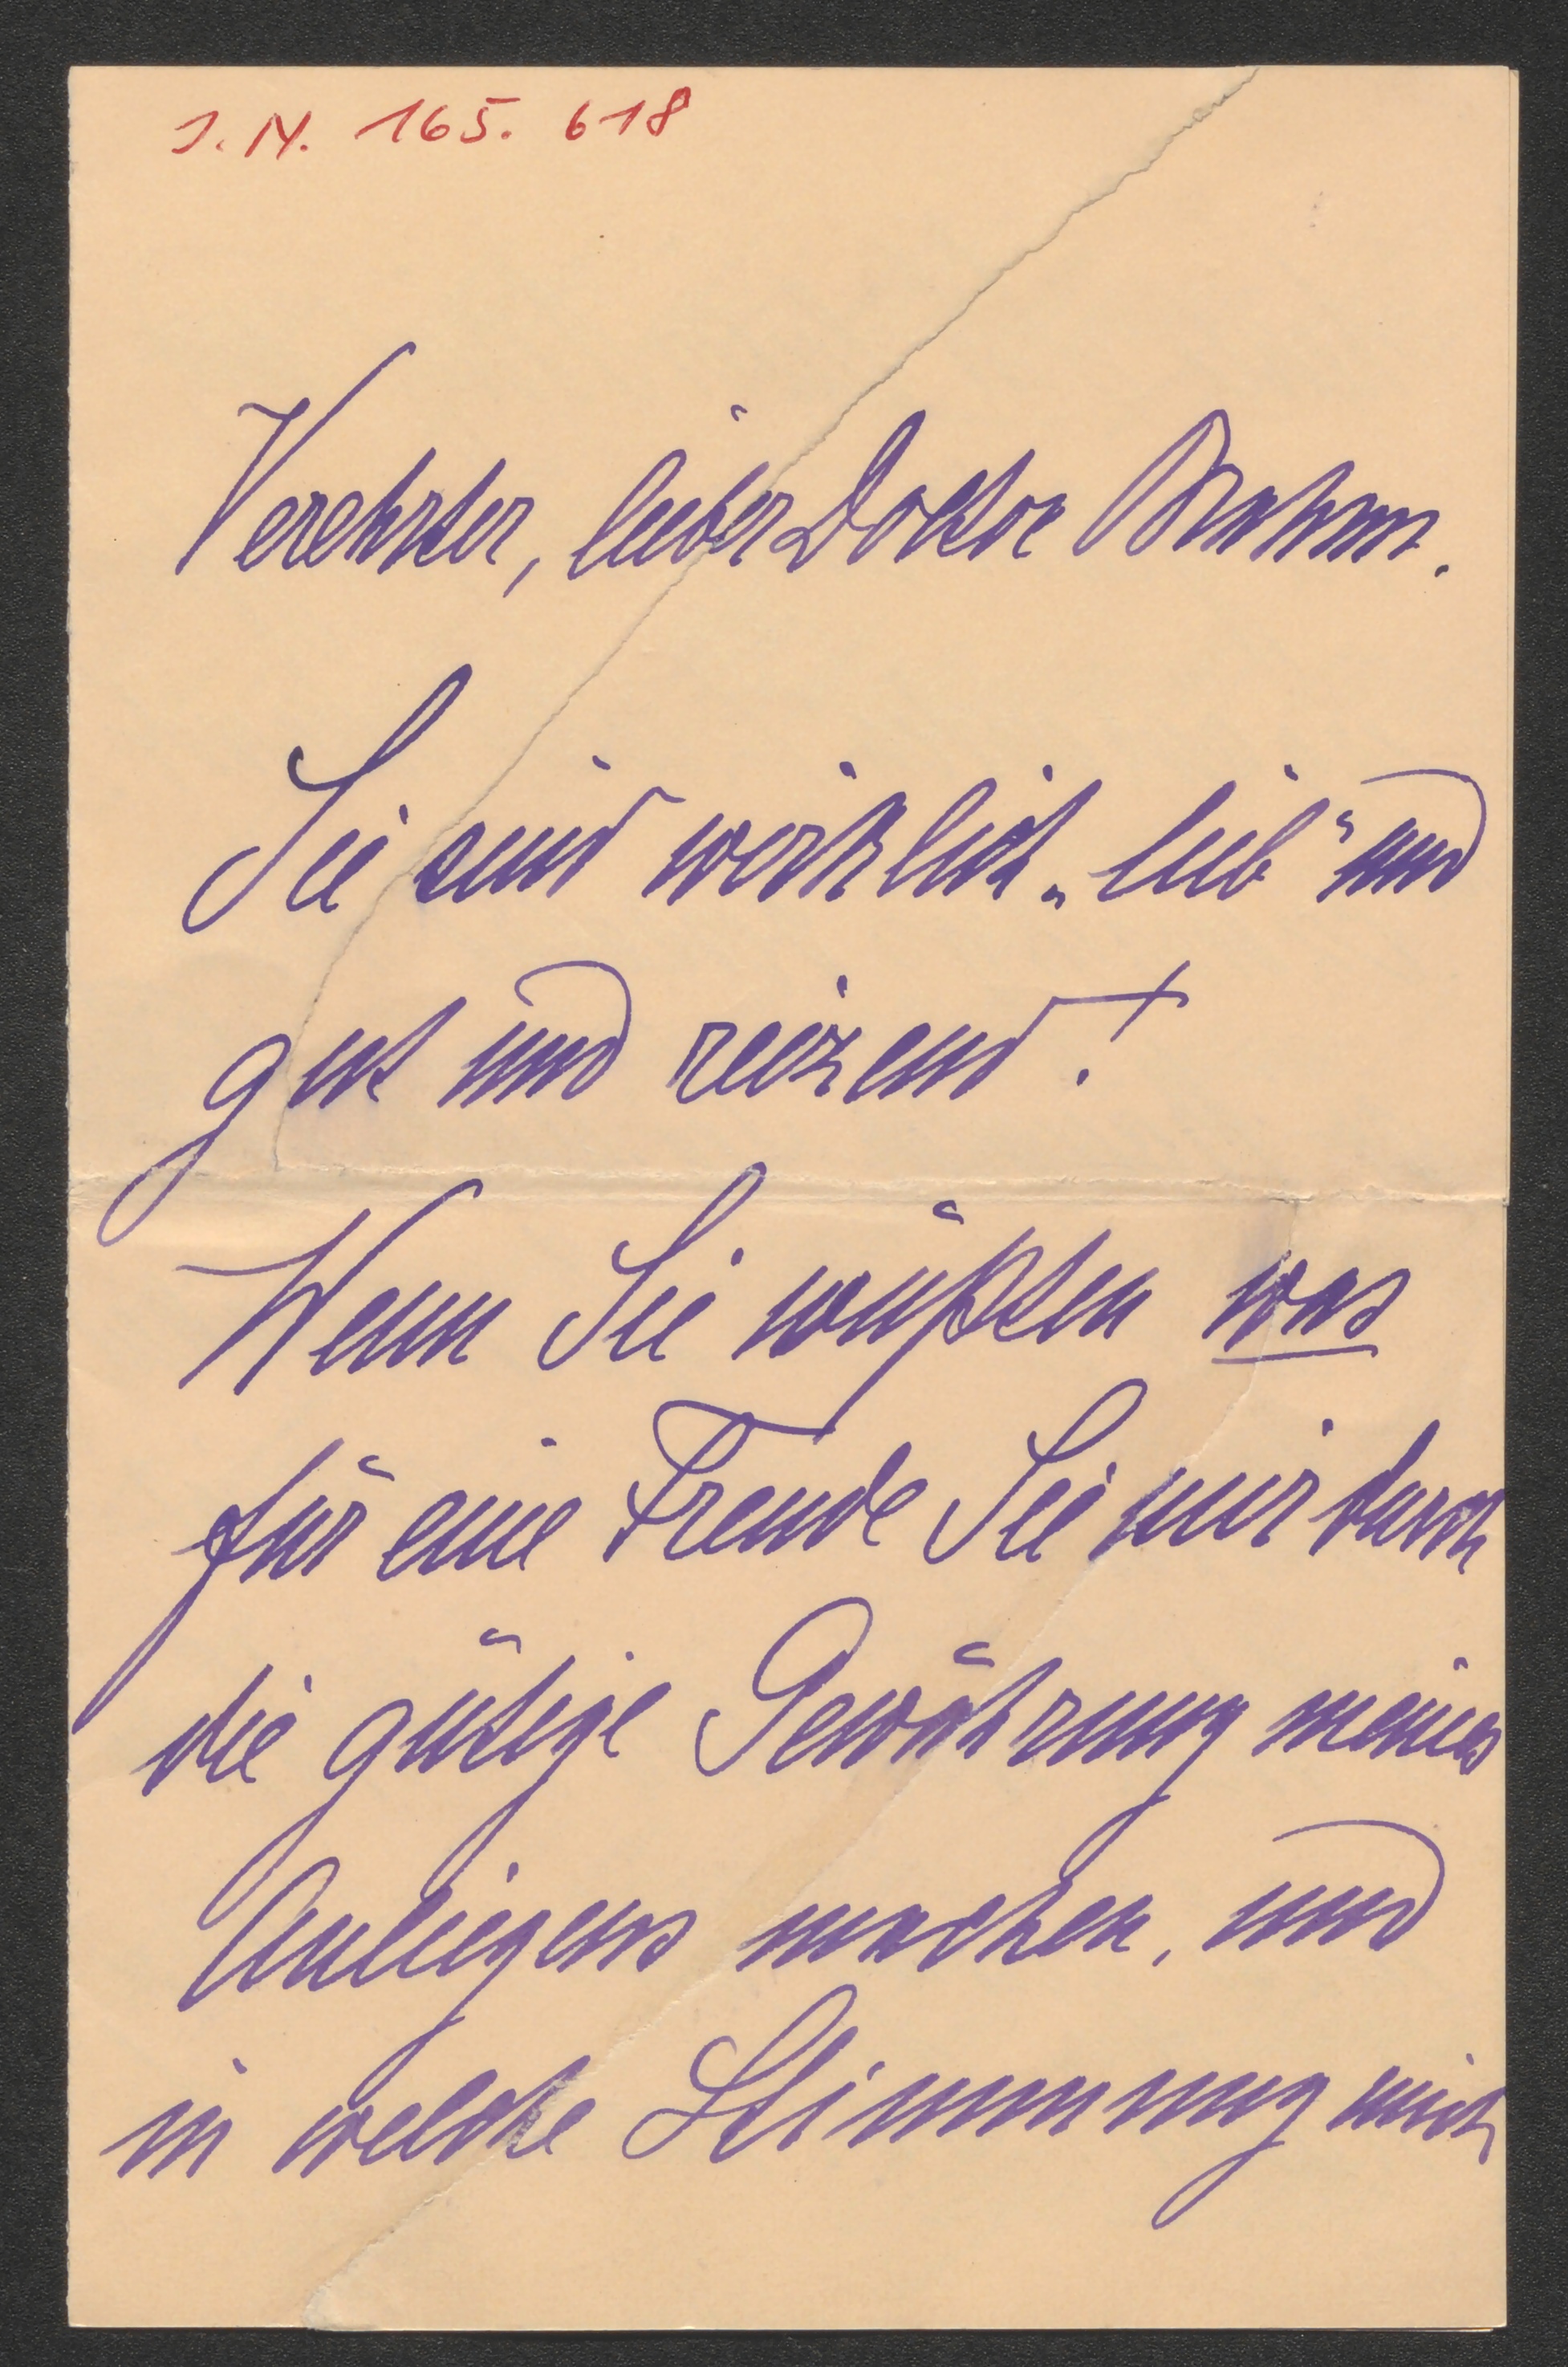 J.N. 165.618
Verehrter, lieber Doktor Brahm.
Sie sind wirklich „lieb“ und
gut und reizend!
Wenn Sie wüßten was
für eine Freude Sie mir durch
die gütige Gewährung meines
Anliegens machen, und
in welche Stimmung mich